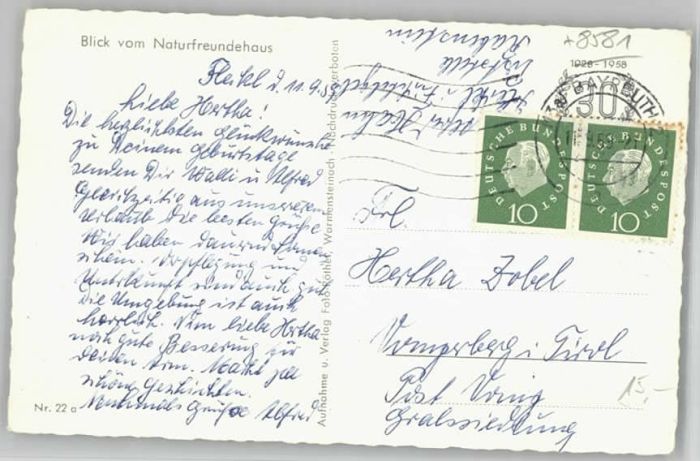 Blick vom Naturfreundehaus
Fleikl d. 11.9.59
Liebe Hertha!
Die herzlichsten Glückwünsche
zu Deinem Geburtstage
senden Dir Walli u. Alfred
Gleichzeitig aus unserem
Urlaub die besten Grüße
Wir haben dauernd Sonnen
schein. Verpflegung und
Unterkunft sind auch gut
die Umgebung ist auch
herrlich. Nun liebe Hertha
noch gute Besserung für
Deinen Arm. Macht ja
schöne Geschichten.
Nochmals Grüße Alfred
Nr. 22 a
Aufnahme u. Verlag Foto Warmensteinach Nachdruck verboten
+8581
1928-1958
BAYREUTH
30
DEUTSCHE BUNDESPOST
10
DEUTSCHE BUNDESPOST
10
Frl.
Hertha Zobel
i. Tirol
Post
Gralssiedlung
15,-